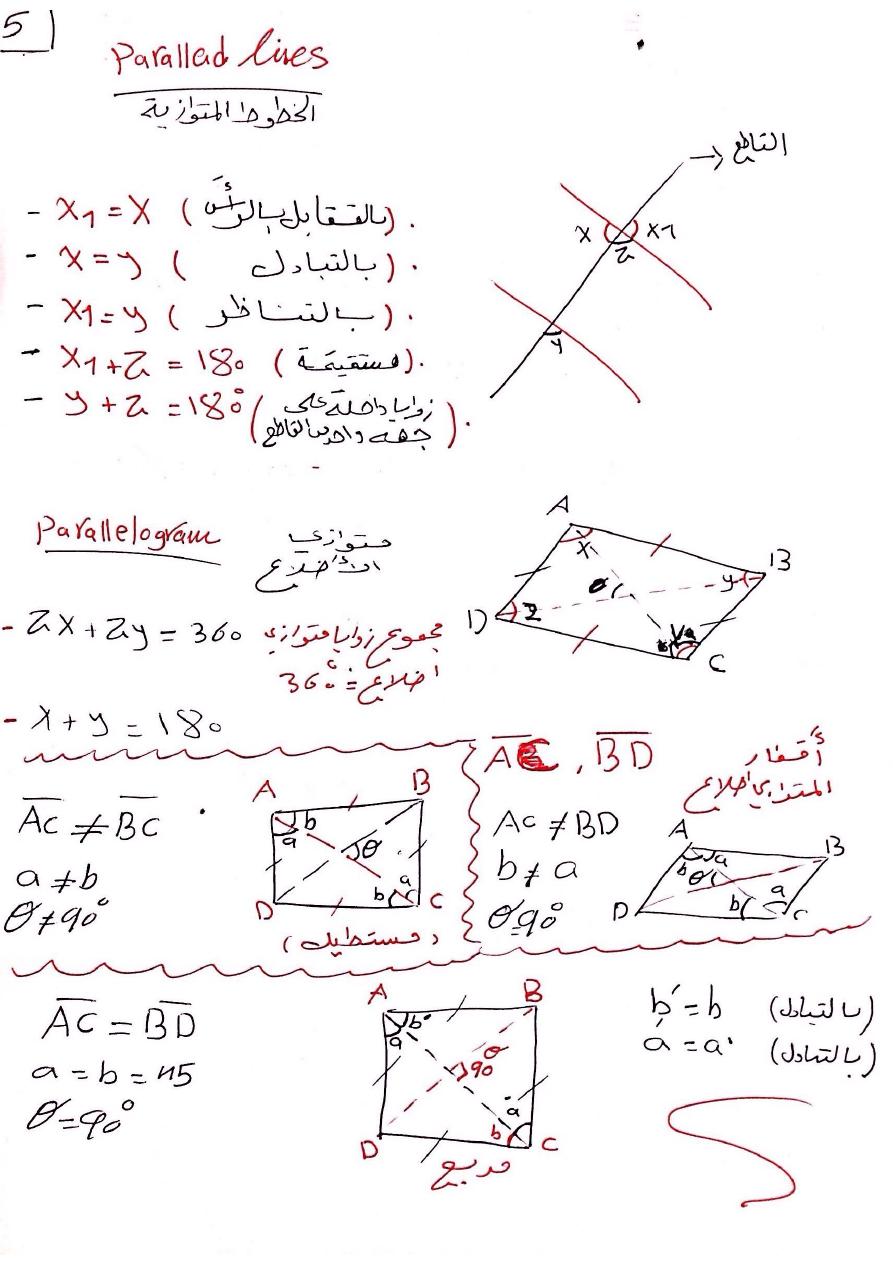 5
Parallad lives
الخطوط المتوازية
القاطع
- x1 = x (بالتقابل بالرأس).
- x = y (بالتبادل).
- x1 = y (بالتناظر).
- x1 + z = 180 (مستقيمة).
- y + z = 180° (زوايا داخلة على
جهه واحدة من القاطع).
x x1
z
y
Parallelogram
متوازي
الأضلاع
- 2x + 2y = 360 مجموع زوايا متوازي
أضلاع = 360°
- x + y = 180
A
x
B
y
θ
D z
C
AC ≠ BC
a ≠ b
θ ≠ 90°
A B
b
a
θ
a
b
D C
(مستطيل)
AC , BD
أقطار
المتوازي أضلاع
AC ≠ BD
b ≠ a
θ = 90°
A B
a
b
θ
a
b
D C
AC = BD
a = b = 45
θ = 90°
A B
b'
a
θ
90°
a'
b
D C
مربع
b' = b (بالتبادل)
a = a' (بالتبادل)